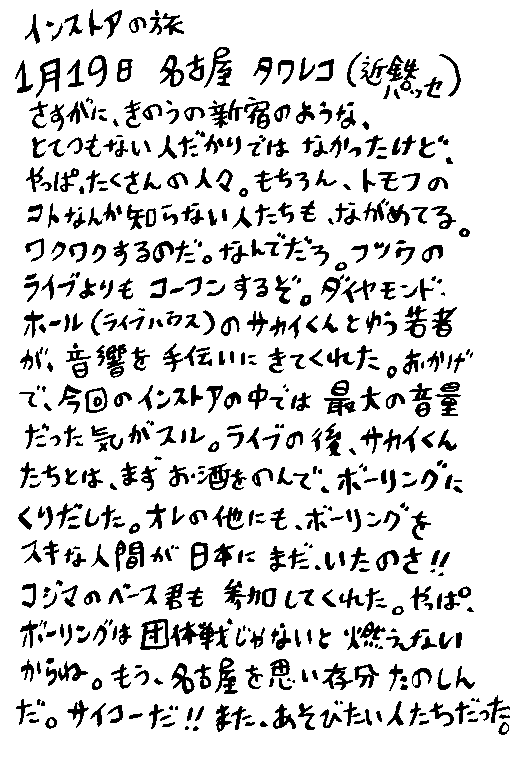 インストアの旅
1月19日 名古屋 タワレコ(近鉄パッセ)
さすがに、きのうの新宿のような、
とてつもない人だかりでは なかったけど、
やっぱ、たくさんの人々。もちろん、トモフの
コトなんか知らない人たちも、ながめてる。
ワクワクするのだ。なんでだろ。フツウの
ライブよりも コーフンするぞ。ダイヤモンド・
ホール(ライブハウス)のサカイくんとゆう若者
が、音響を 手伝いに きてくれた。おかげ
で、今回のインストアの中では 最大の音量
だった気がスル。ライブの後、サカイくん
たちとは、まず お酒をのんで、ボーリングに
くりだした。オレの他にも、ボーリングを
スキな人間が 日本に まだ、いたのさ!!
コジマのベース君も 参加してくれた。やっぱ、
ボーリングは団体戦じゃないと 燃えない
からね。もう、名古屋を思い存分 たのしん
だ。サイコーだ!! また、あそびたい人たちだった。